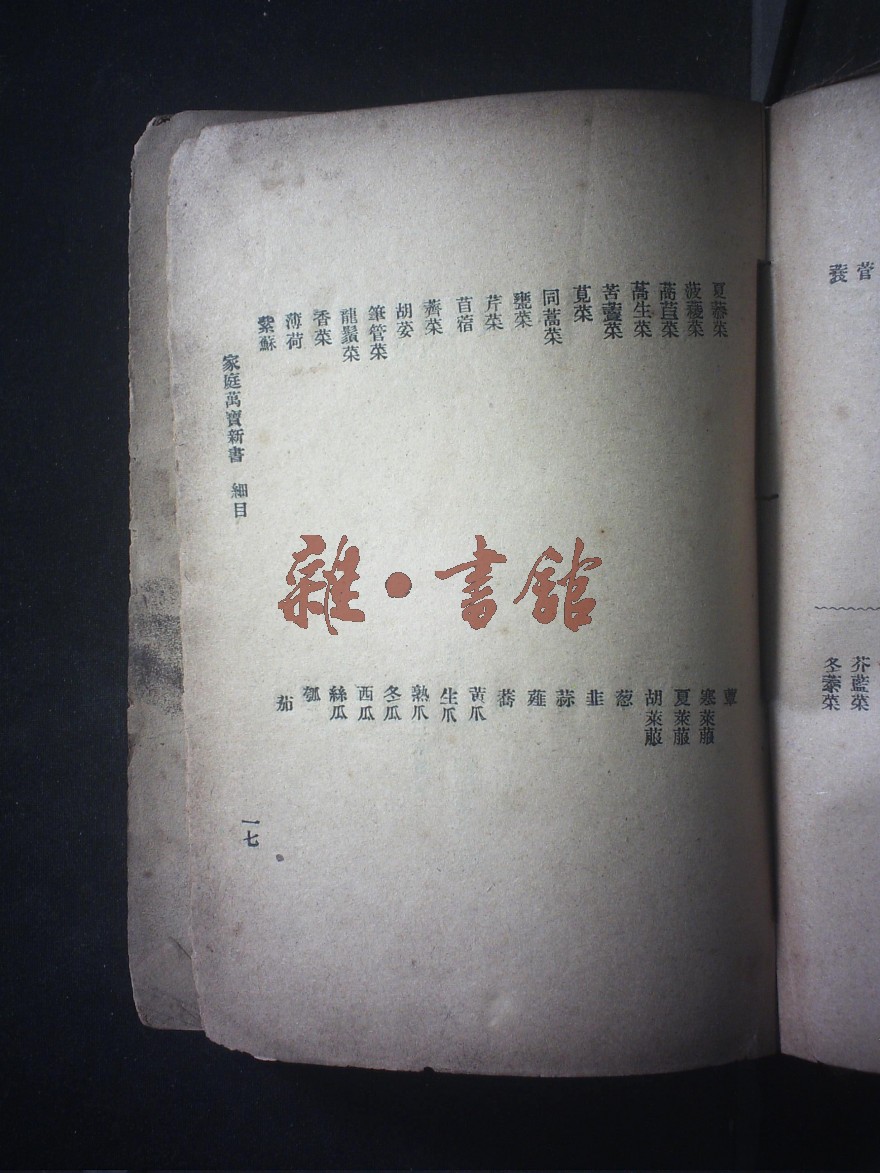 夏菘菜
菠薐菜
萵苣菜
萵生菜
苦藚菜
莧菜
同蒿菜
甕菜
芹菜
苜蓿
薺菜
胡荽
筆管菜
龍鬚菜
香菜
薄荷
紫蘇
蕈
寒萊菔
夏萊菔
胡萊菔
葱
韭
蒜
薤
黃爪
生爪
熟爪
冬瓜
西瓜
絲瓜
瓠
茄
家庭萬寶新書 細目
一七
雜·書館
菅
芥藍菜
冬菜